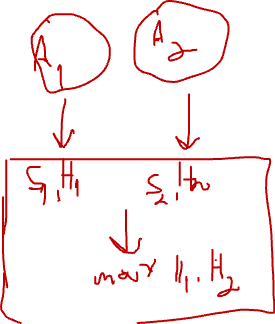 A1 A2
S1,H1 S2,H2
max H1, H2